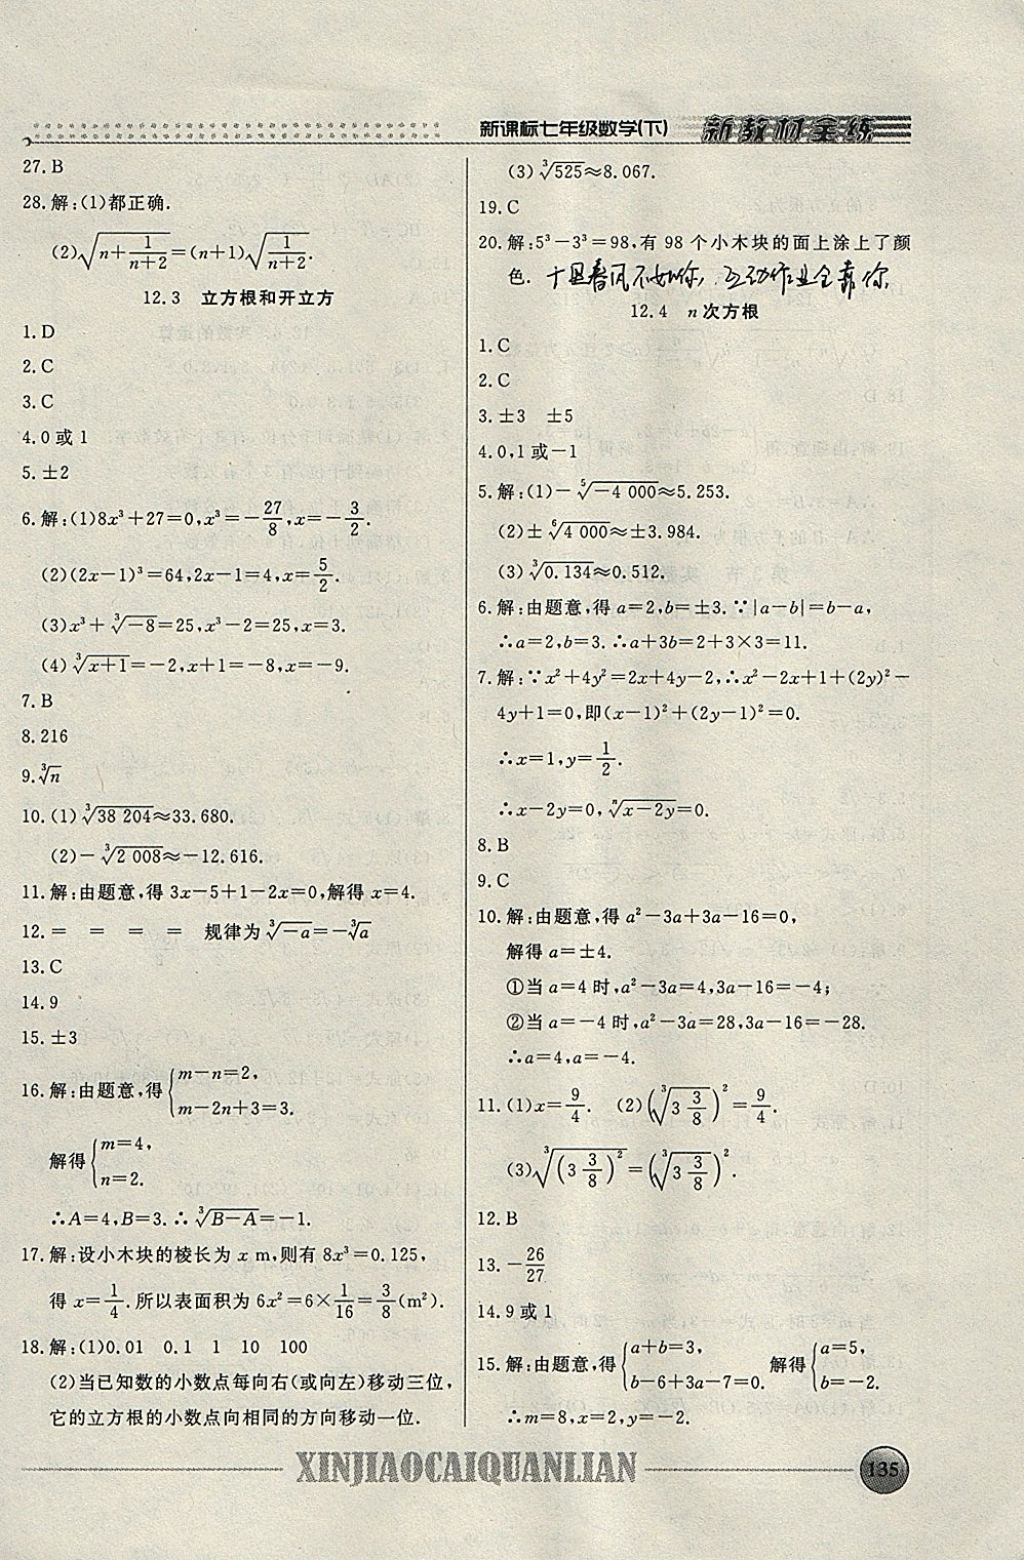 新课标七年级数学(下) 新教材全练
27.B
28.解:(1)都正确.
(2)√(n+1/(n+2))=(n+1)√(1/(n+2)).
12.3 立方根和开立方
1.D
2.C
3.C
4.0或1
5.±2
6.解:(1)8x³+27=0,x³=-27/8,x=-3/2.
(2)(2x-1)³=64,2x-1=4,x=5/2.
(3)x³+∛(-8)=25,x³-2=25,x=3.
(4)∛(x+1)=-2,x+1=-8,x=-9.
7.B
8.216
9.∛n
10.(1)∛(38 204)≈33.680.
(2)-∛(2 008)≈-12.616.
11.解:由题意,得3x-5+1-2x=0,解得x=4.
12.= = = = 规律为∛(-a)=-∛a
13.C
14.9
15.±3
16.解:由题意,得{m-n=2,
m-2n+3=3.
解得{m=4,
n=2.
∴A=4,B=3.∴∛(B-A)=-1.
17.解:设小木块的棱长为x m,则有8x³=0.125,
得x=1/4.所以表面积为6x²=6×1/16=3/8(m²).
18.解:(1)0.01 0.1 1 10 100
(2)当已知数的小数点每向右(或向左)移动三位,
它的立方根的小数点向相同的方向移动一位.
(3)∛525≈8.067.
19.C
20.解:5³-3³=98,有98个小木块的面上涂上了颜
色. 十里春风不如你,互动作业全靠你
12.4 n次方根
1.C
2.C
3.±3 ±5
4.0,1或-1
5.解:(1)-⁵√(-4 000)≈5.253.
(2)±⁶√(4 000)≈±3.984.
(3)∛(0.134)≈0.512.
6.解:由题意,得a=2,b=±3.∵|a-b|=b-a,
∴a=2,b=3.∴a+3b=2+3×3=11.
7.解:∵x²+4y²=2x+4y-2,∴x²-2x+1+(2y)²-
4y+1=0,即(x-1)²+(2y-1)²=0.
∴x=1,y=1/2.
∴x-2y=0,ⁿ√(x-2y)=0.
8.B
9.C
10.解:由题意,得a²-3a+3a-16=0,
解得a=±4.
①当a=4时,a²-3a=4,3a-16=-4;
②当a=-4时,a²-3a=28,3a-16=-28.
∴a=4,a=-4.
11.(1)x=9/4. (2)(∛(3 3/8))²=9/4.
(3)∛((3 3/8)²)=(∛(3 3/8))².
12.B
13.-26/27
14.9或1
15.解:由题意,得{a+b=3, 解得{a=5,
b-6+3a-7=0. b=-2.
∴m=8,x=2,y=-2.
XINJIAOCAIQUANLIAN 135